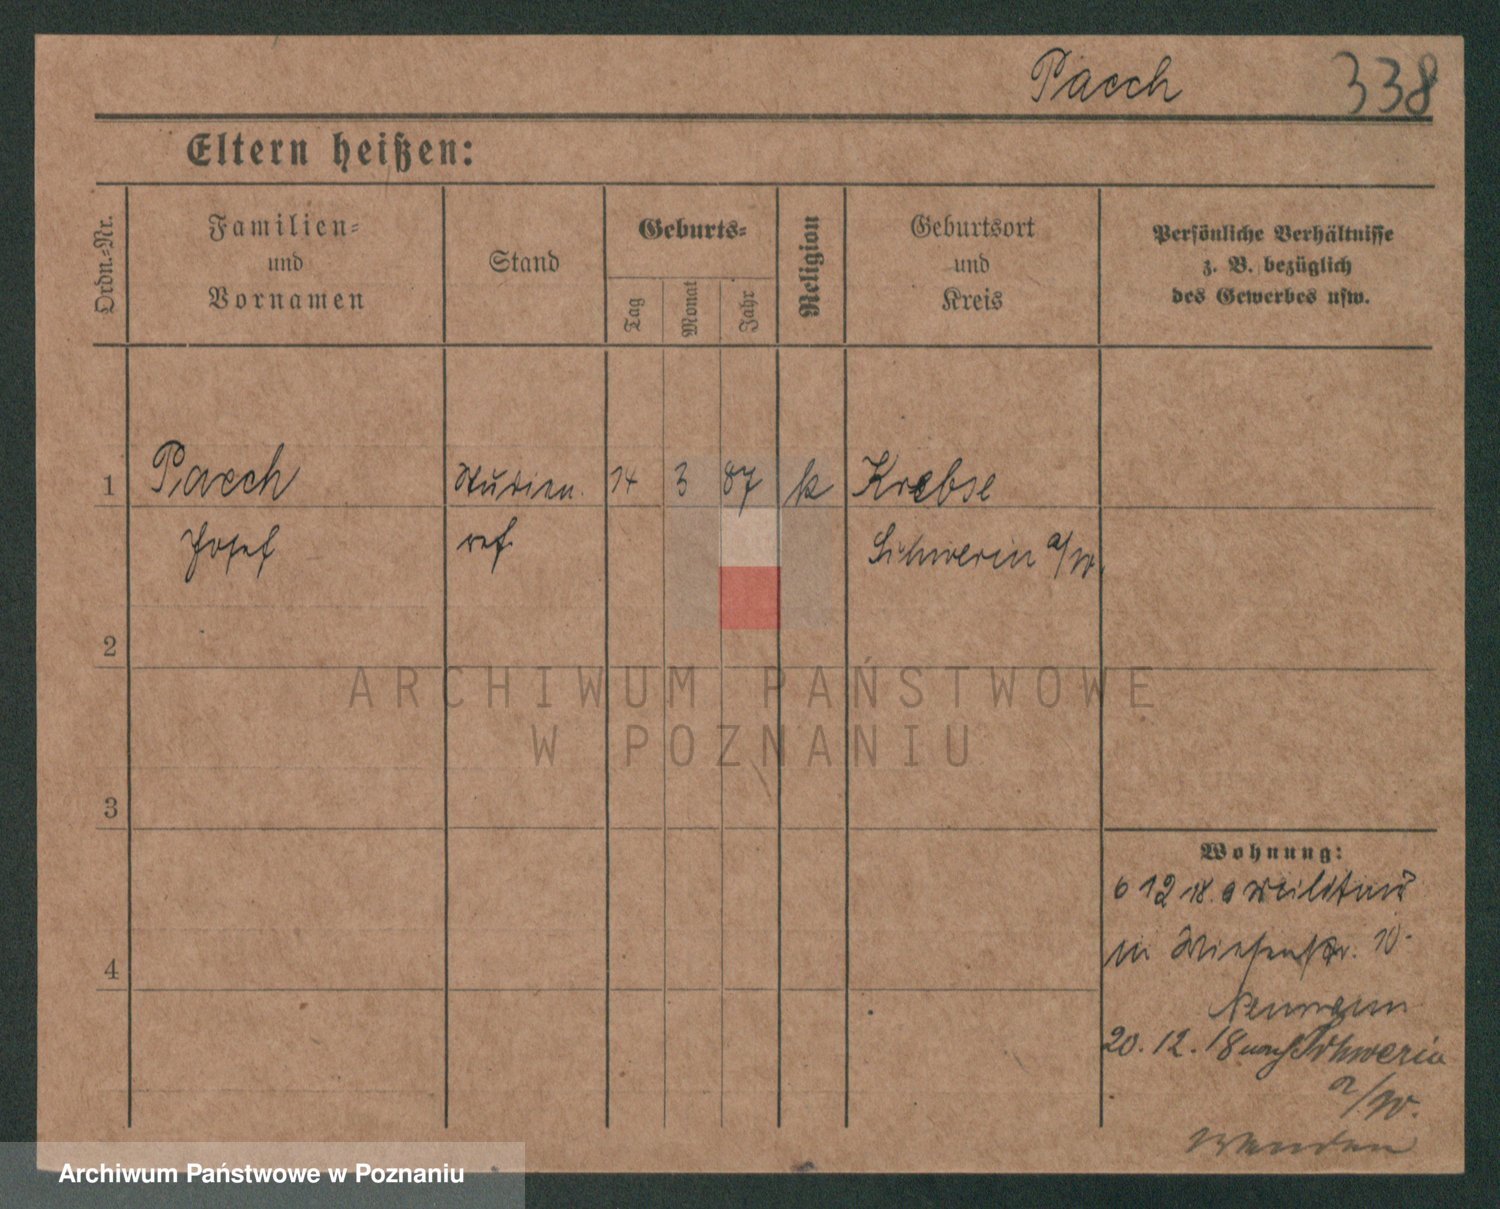 Paech 338
Eltern heißen:
Ordn.-Nr.
Familien-
und
Vornamen
Stand
Geburts-
Tag
Monat
Jahr
Religion
Geburtsort
und
Kreis
Persönliche Verhältnisse
z. B. bezüglich
des Gewerbes usw.
1 Paech Studien 14 3 87 k Krebse
Josef ref. Schwerin a/W.
2
3
4
Wohnung:
6 12 18
in Wiesenstr. 10.
Neumann
20. 12. 18 nach Schwerin
a/W.
Wenden
ARCHIWUM PAŃSTWOWE
W POZNANIU
Archiwum Państwowe w Poznaniu